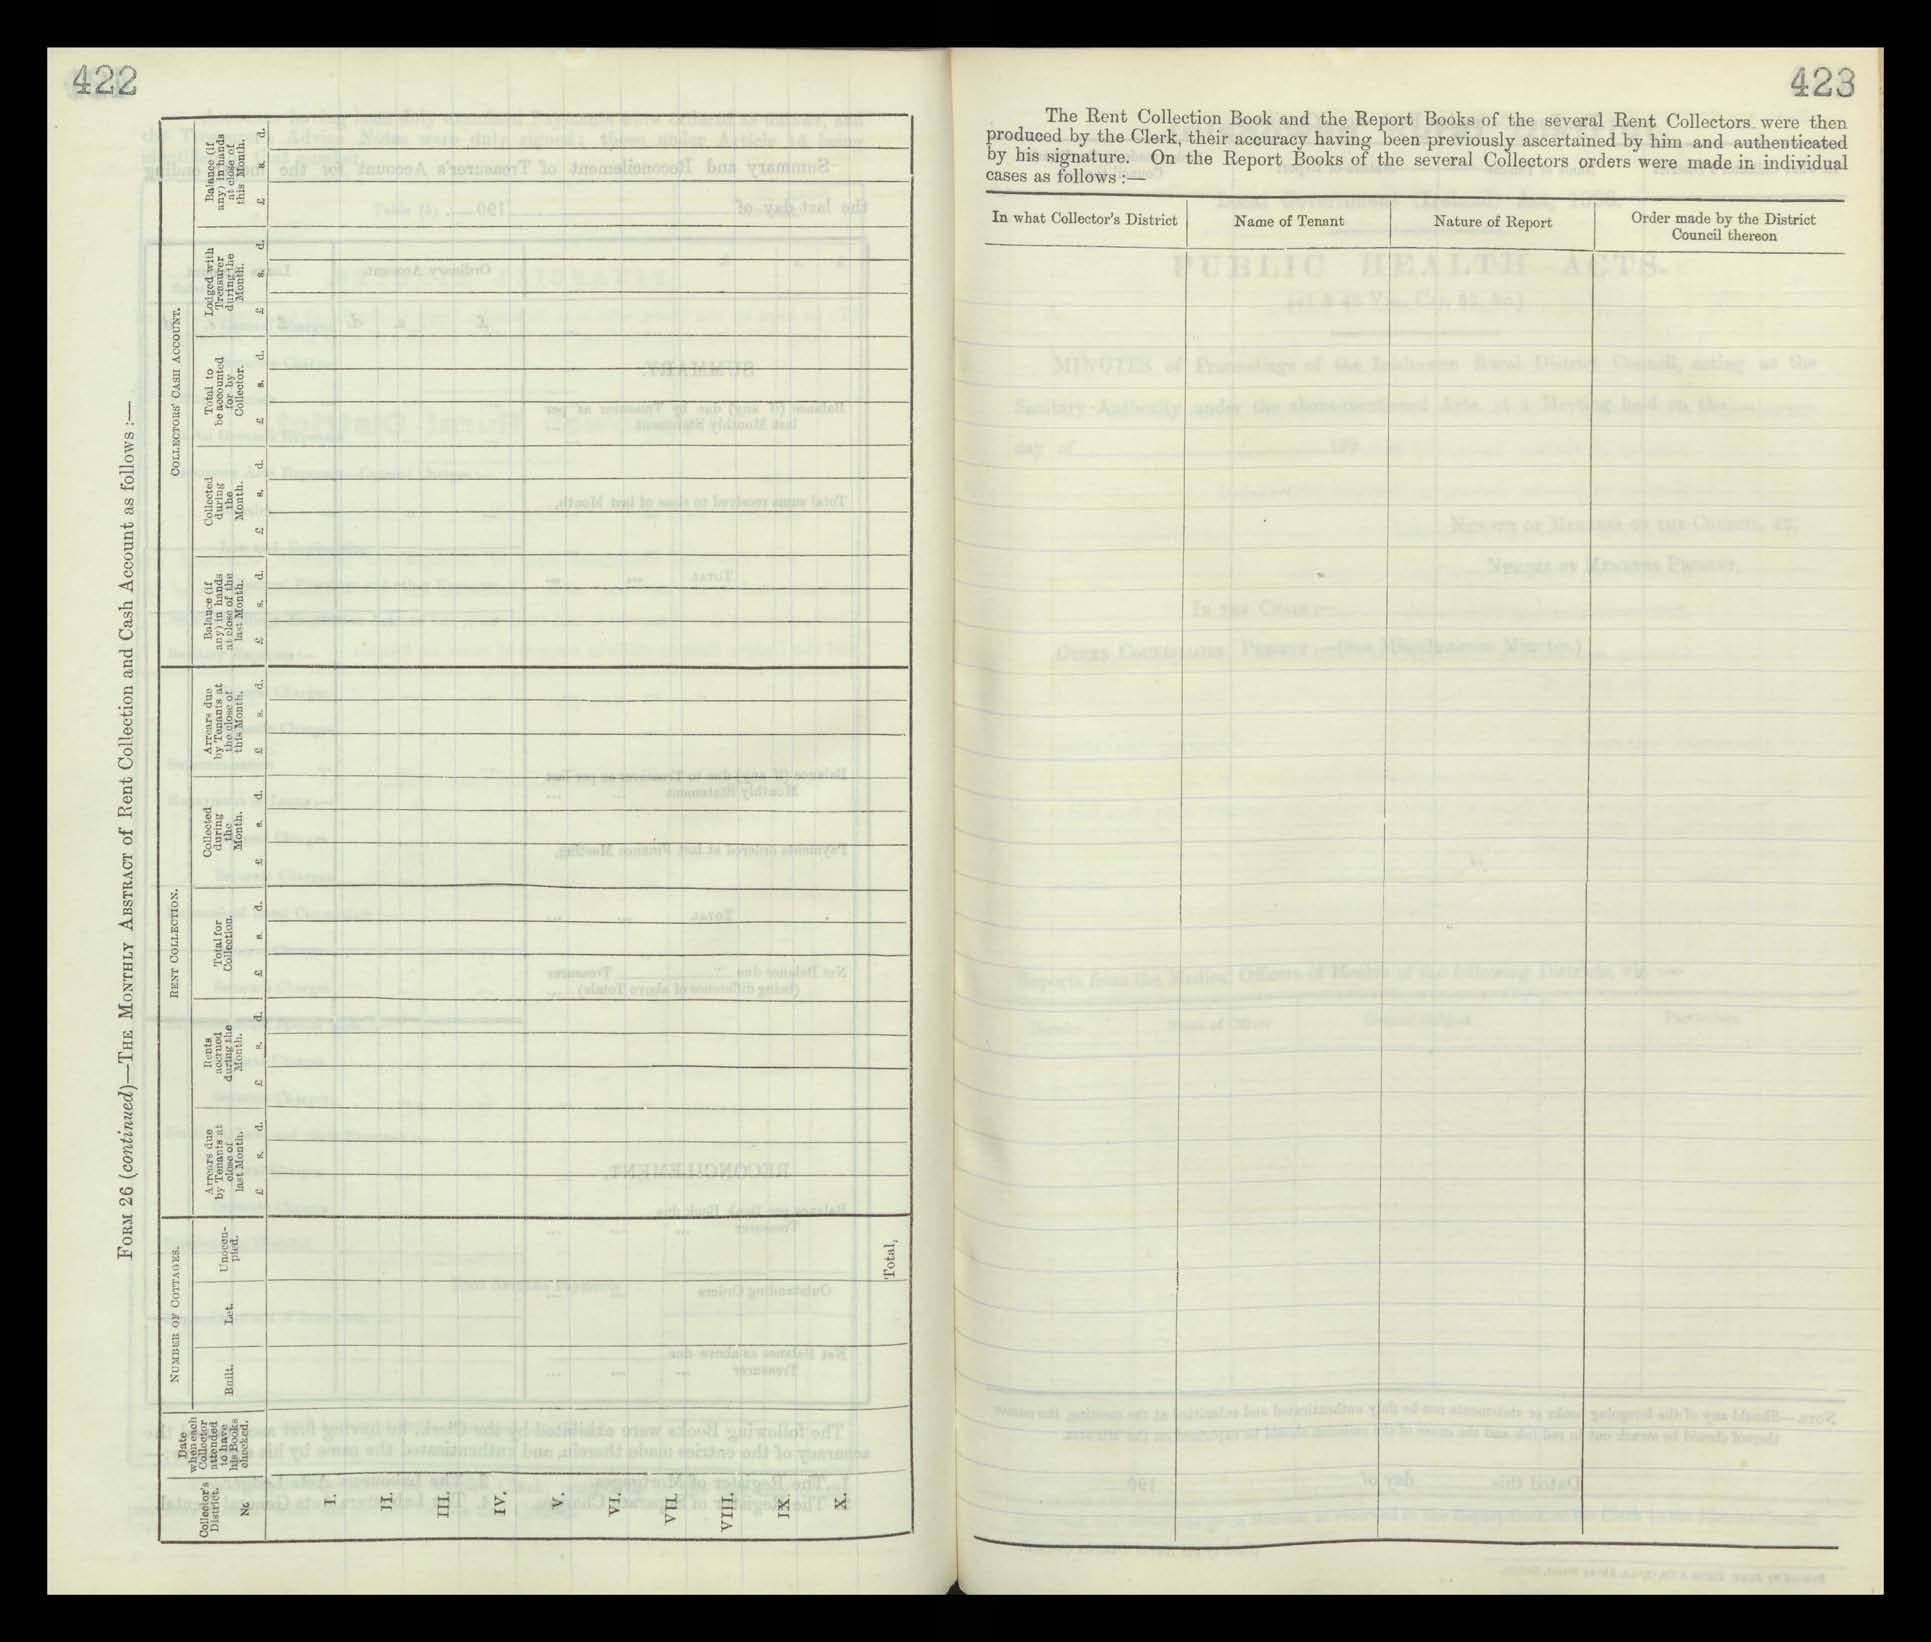 422
FORM 26 (continued)—THE MONTHLY ABSTRACT of Rent Collection and Cash Account as follows :—
Collector's
District.
No
Date
when each
Collector
attended
to have
his Books
checked.
NUMBER OF COTTAGES.
Built.
Let.
Unoccu-
pied.
RENT COLLECTION.
Arrears due
by Tenants at
close of
last Month.
£ s. d.
Rents
accrued
during the
Month.
£ s. d.
Total for
Collection.
£ s. d.
Collected
during
the
Month.
£ s. d.
Arrears due
by Tenants at
the close of
this Month.
£ s. d.
COLLECTORS' CASH ACCOUNT.
Balance (if
any) in hands
at close of the
last Month.
£ s. d.
Collected
during
the
Month.
£ s. d.
Total to
be accounted
for by
Collector.
£ s. d.
Lodged with
Treasurer
during the
Month.
£ s. d.
Balance (if
any) in hands
at close of
this Month.
£ s. d.
I.
II.
III.
IV.
V.
VI.
VII.
VIII.
IX.
X.
Total,
423
The Rent Collection Book and the Report Books of the several Rent Collectors were then
produced by the Clerk, their accuracy having been previously ascertained by him and authenticated
by his signature. On the Report Books of the several Collectors orders were made in individual
cases as follows :—
In what Collector's District
Name of Tenant
Nature of Report
Order made by the District
Council thereon